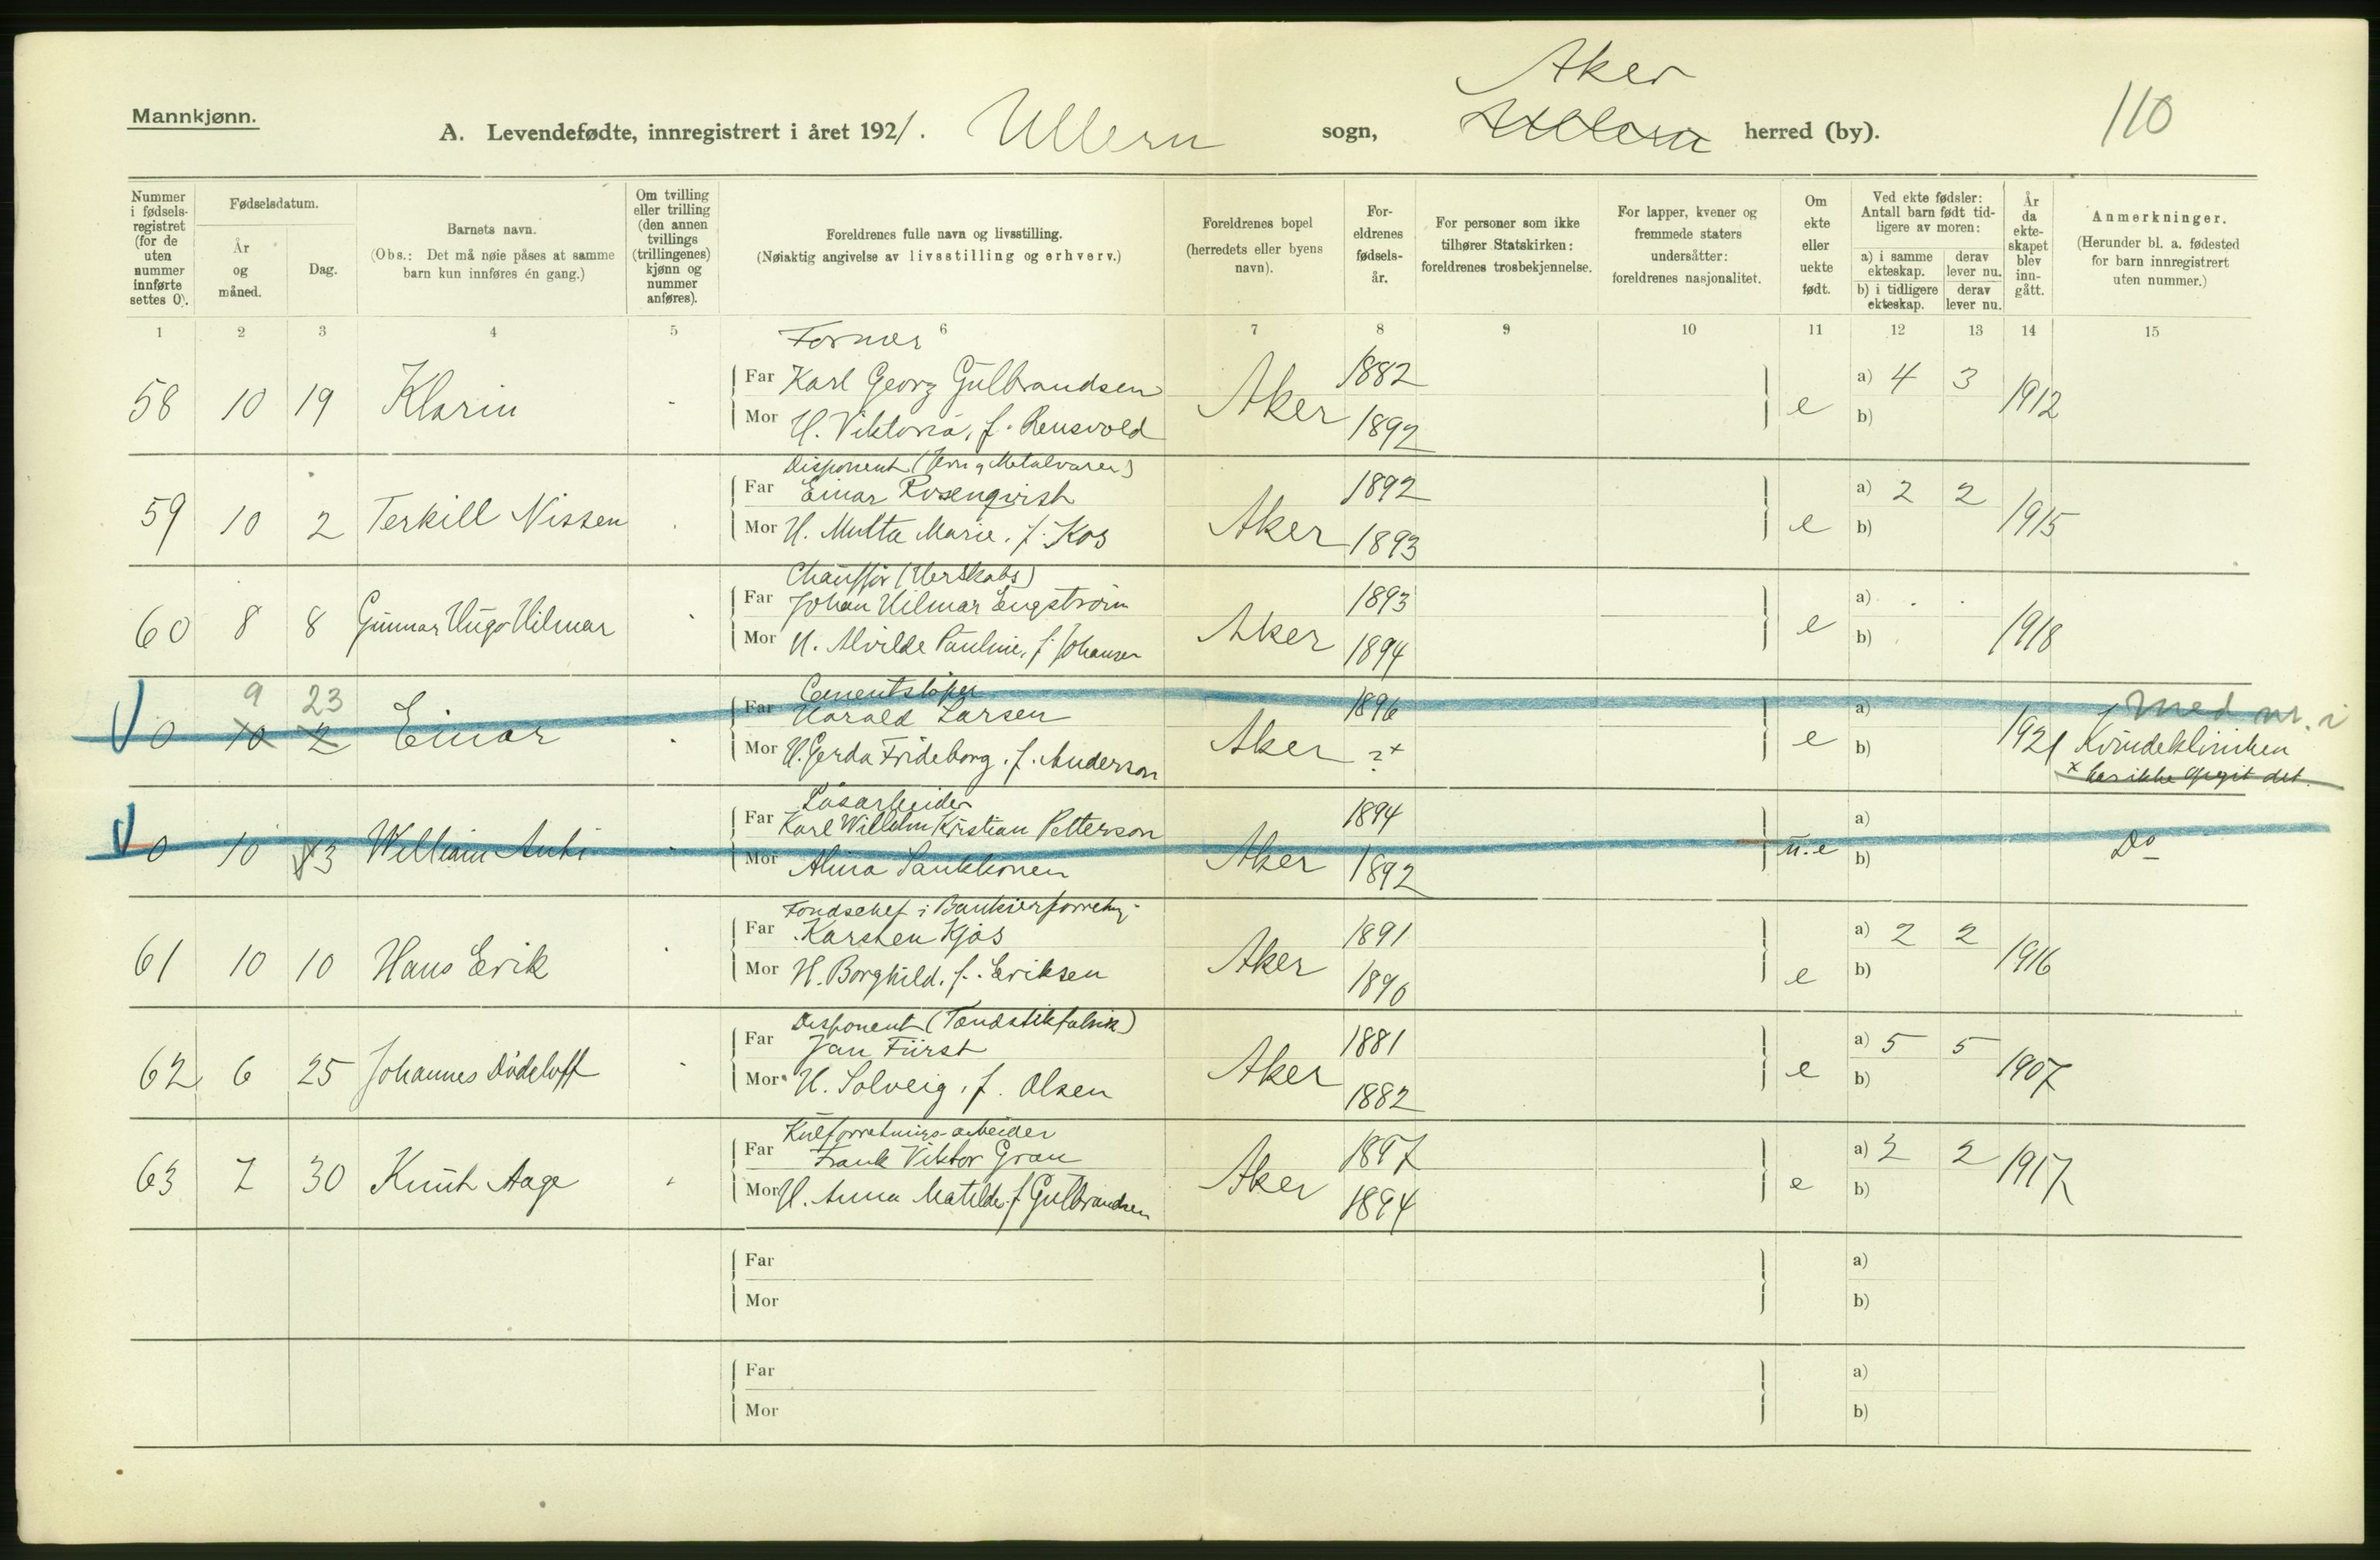 Mannkjønn.
A. Levendefødte, innregistrert i året 1921. Ullern sogn, Aker herred (by). 110
Nummer i fødselsregistret (for de uten nummer innførte settes 0).
Fødselsdatum.
År og måned.
Dag.
Barnets navn.
(Obs.: Det må nøie påses at samme barn kun innføres én gang.)
Om tvilling eller trilling (den annen tvillings (trillingenes) kjønn og nummer anføres).
Foreldrenes fulle navn og livsstilling.
(Nøiaktig angivelse av livsstilling og erhverv.)
Foreldrenes bopel
(herredets eller byens navn).
Foreldrenes fødselsår.
For personer som ikke tilhører Statskirken: foreldrenes trosbekjennelse.
For lapper, kvener og fremmede staters undersåtter: foreldrenes nasjonalitet.
Om ekte eller uekte født.
Ved ekte fødsler: Antall barn født tidligere av moren:
a) i samme ekteskap. derav lever nu.
b) i tidligere ekteskap. derav lever nu.
År da ekteskapet blev inngått.
Anmerkninger.
(Herunder bl. a. fødested for barn innregistrert uten nummer.)
1 2 3 4 5 6 7 8 9 10 11 12 13 14 15
Former
58 10 19 Klarin - Far Karl Georg Gulbrandsen Aker 1882 e a) 4 3 1912
Mor H. Viktoria, f. Rensvold 1892 b)
Disponent (Jern og Metalvarer)
59 10 2 Terkill Nissen Far Einar Rosenqvist Aker 1892 e a) 2 2 1915
Mor H. Mutta Marie, f. Kos 1893 b)
Chauffør (Herskabs)
60 8 8 Gunnar Hugo Hilmar Far Johan Hilmar Engstrøm Aker 1893 e a) . . 1918
Mor H. Alvilde Pauline, f. Johansen 1894 b)
9 23 Cementstøper med nr. i
0 10 2 Einar Far Harald Larsen Aker 1896 e a) 1921 Kvindekliniken
Mor H. Gerda Frideborg, f. Anderson ?x b) x har ikke opgit det.
Løsarbeider
0 10 13 William Anti - Far Karl Wilhelm Kristian Petterson Aker 1894 u.e a) Do
Mor Alina Saukkonen 1892 b)
Fondschef i Bankierforretng.
61 10 10 Hans Erik Far Karsten Kjøs Aker 1891 e a) 2 2 1916
Mor H. Borghild, f. Eriksen 1890 b)
Disponent (Tændstikfabrik)
62 6 25 Johannes Dødeloff - Far Jan Fürst Aker 1881 e a) 5 5 1907
Mor H. Solveig, f. Olsen 1882 b)
Kulforretnings-arbeider
63 7 30 Knut Aage Far Frank Viktor Gran Aker 1897 e a) 2 2 1917
Mor H. Anna Matilde f. Gulbrandsen 1894 b)
Far a)
Mor b)
Far a)
Mor b)